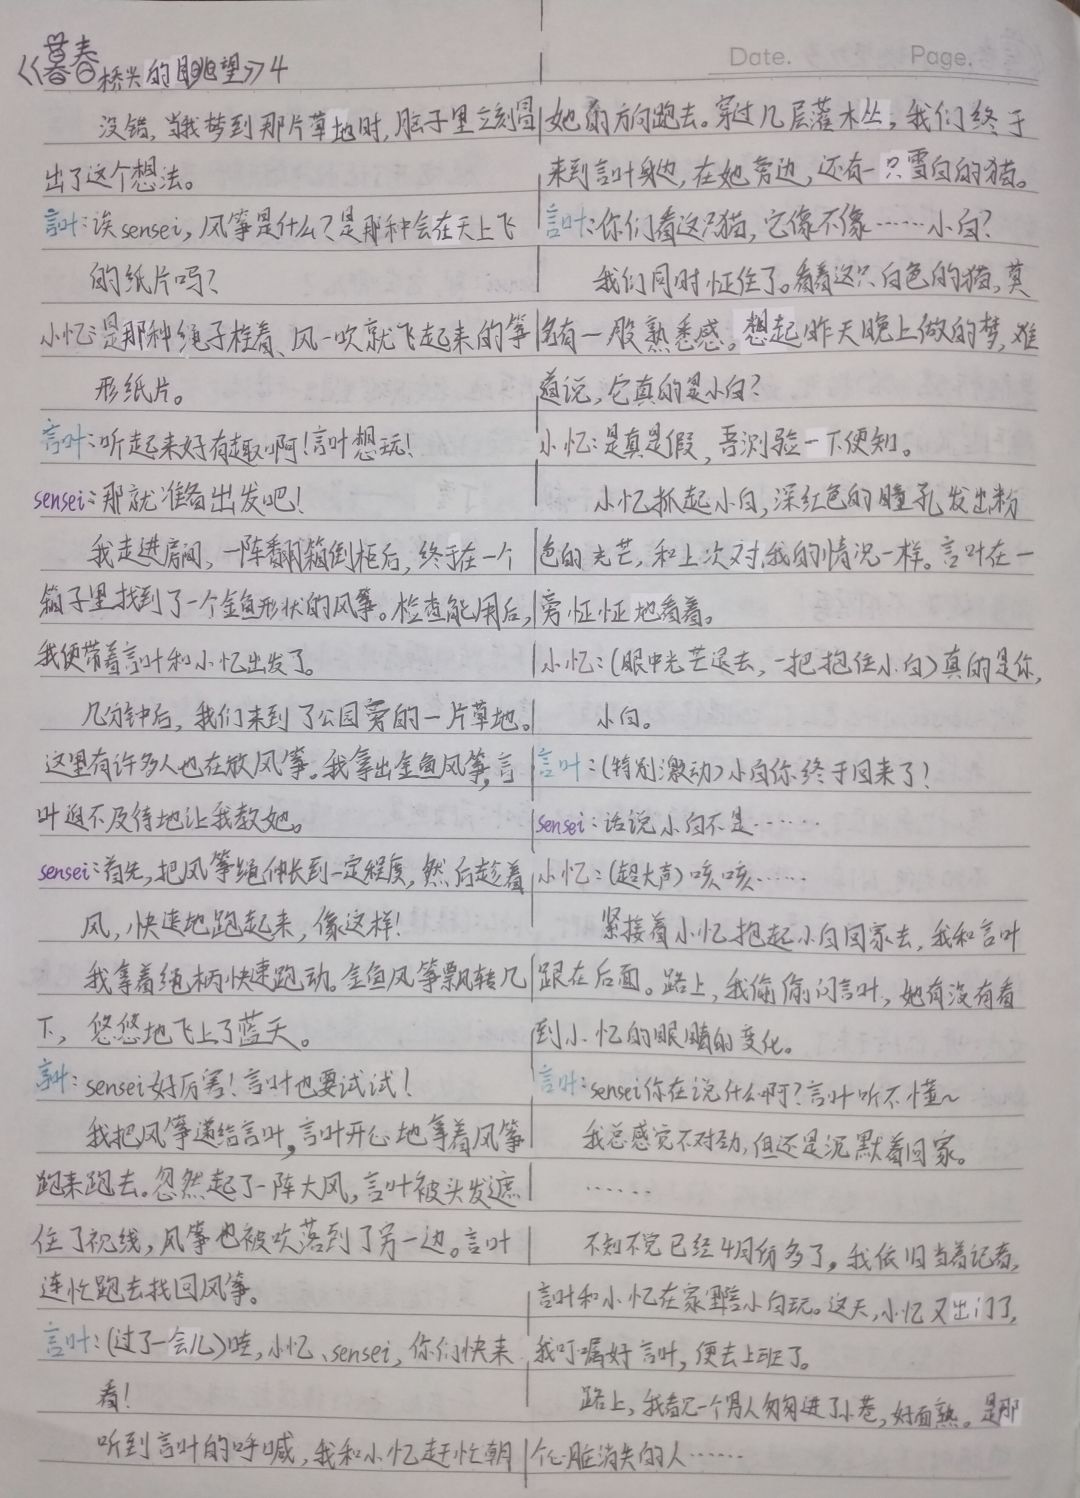 《暮春桥头的眺望》4
Date. Page.
没错，当我梦到那片草地时，脑子里立刻冒
出了这个想法。
言叶：诶sensei，风筝是什么？是那种会在天上飞
的纸片吗？
小忆：是那种绳子栓着、风一吹就飞起来的筝
形纸片。
言叶：听起来好有趣啊！言叶想玩！
sensei：那就准备出发吧！
我走进房间，一阵翻箱倒柜后，终于在一个
箱子里找到了一个金鱼形状的风筝。检查能用后，
我便带着言叶和小忆出发了。
几分钟后，我们来到了公园旁的一片草地。
这里有许多人也在放风筝。我拿出金鱼风筝，言
叶迫不及待地让我教她。
sensei：首先，把风筝绳伸长到一定程度，然后趁着
风，快速地跑起来，像这样！
我拿着绳柄快速跑动。金鱼风筝飘转几
下，悠悠地飞上了蓝天。
言叶：sensei好厉害！言叶也要试试！
我把风筝递给言叶，言叶开心地拿着风筝
跑来跑去。忽然起了一阵大风，言叶被头发遮
住了视线，风筝也被吹落到了另一边。言叶
连忙跑去找回风筝。
言叶：(过了一会儿)哇，小忆、sensei，你们快来
看！
听到言叶的呼喊，我和小忆赶忙朝
她的方向跑去。穿过几层灌木丛，我们终于
来到言叶身边，在她旁边，还有一只雪白的猫。
言叶：你们看这只猫，它像不像……小白？
我们同时怔住了。看着这只白色的猫，莫
名有一股熟悉感。想起昨天晚上做的梦，难
道说，它真的是小白？
小忆：是真是假，吾测验一下便知。
小忆抓起小白，深红色的瞳孔发出粉
色的光芒，和上次对我的情况一样。言叶在一
旁怔怔地看着。
小忆：(眼中光芒退去，一把抱住小白)真的是你，
小白。
言叶：(特别激动)小白你终于回来了！
sensei：话说小白不是……
小忆：(超大声)咳咳……
紧接着小忆抱起小白回家去，我和言叶
跟在后面。路上，我偷偷问言叶，她有没有看
到小忆的眼睛的变化。
言叶：sensei你在说什么啊？言叶听不懂~
我总感觉不对劲，但还是沉默着回家。
……
不知不觉已经4月份多了，我依旧当着记者，
言叶和小忆在家里陪小白玩。这天，小忆又出门了，
我叮嘱好言叶，便去上班了。
路上，我看见一个男人匆匆进了小巷，好面熟。是那
个心脏消失的人……